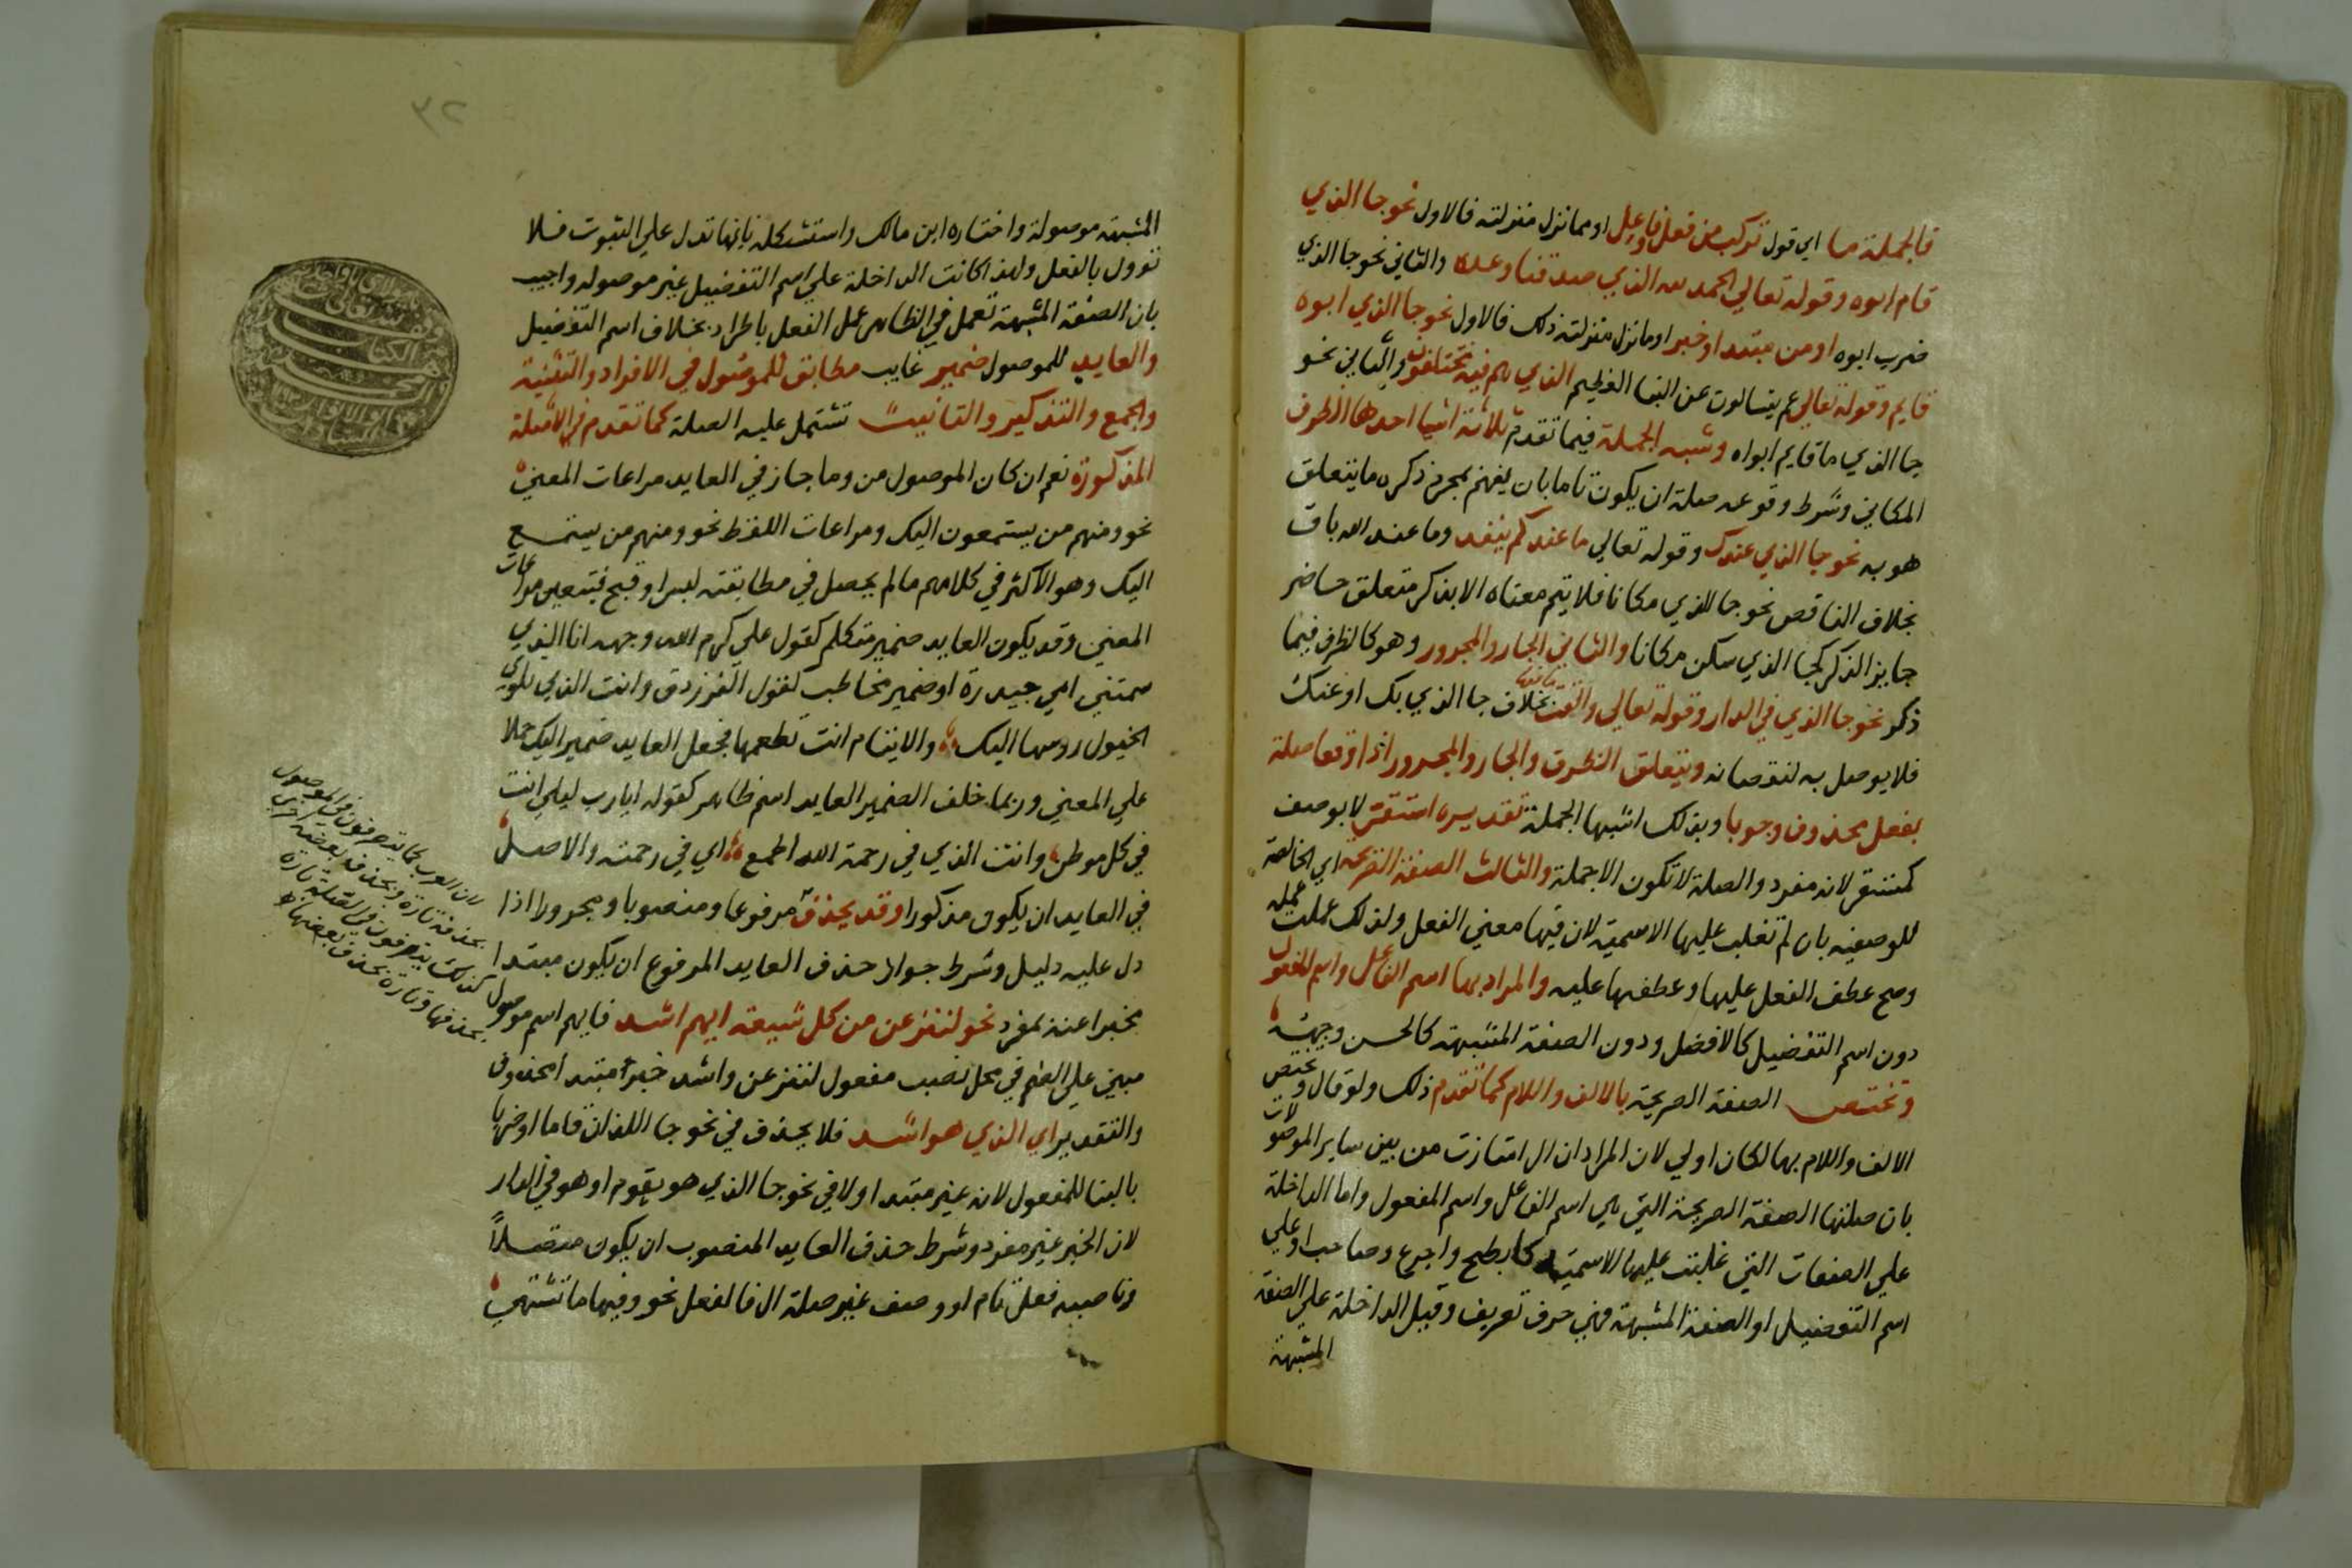 فالجملة ما اي قول تركب من فعل وفاعل او مما نزل منزلته فالاول نحو جا الذي
قام ابوه وقوله تعالي الحمد لله الذي صدقنا وعده والثاني نحو جا الذي
ضرب ابوه او من مبتدا وخبر او ما نزل منزلته ذلك فالاول نحو جا الذي ابوه
قايم وقوله تعالي عم يتسالون عن النبا العظيم الذي هم فيه مختلفون والثاني نحو
جا الذي ما قايم ابواه وشبه الجملة فيما تقدم ثلاثة اشيا احدها الظرف
المكاني وشرط وقوعه صلة ان يكون تاما بان يفهم بمجرد ذكره ما يتعلق
هو به نحو جا الذي عندك وقوله تعالي ما عندكم ينفد وما عند الله باق
بخلاف الناقص نحو جا الذي مكانا فلا يتم معناه الا بذكر متعلق خاص
جايز الذكر كجا الذي سكن مكانا والثاني الجار والمجرور وهو كالظرف فيما
ذكر نحو جا الذي في الدار وقوله تعالي والقت ما فيها بخلاف جا الذي بك او عنك
فلا يوصل به لنقصانه ويتعلق الظرف والجار والمجرور اذا وقعا صلة
بفعل محذوف وجوبا وبذلك اشبها الجملة تقديره استقر لا بوصف
كمستقر لانه مفرد والصلة لا تكون الا جملة والثالث الصفة الصريحة اي الخالصة
للوصفيه بان لم تغلب عليها الاسمية لان فيها معني الفعل ولذلك عملت عمله
وصح عطف الفعل عليها وعطفها عليه والمراد بها اسم الفاعل واسم المفعول
دون اسم التفضيل كالافضل ودون الصفة المشبهة كالحسن وجهه
وتختص الصفة الصريحة بالالف واللام كما تقدم ذلك ولو قال وتختص
الالف واللام بها لكان اولي لان المراد ان ال امتازت من بين ساير الموصولات
بان صلتها الصفة الصريحة التي هي اسم الفاعل واسم المفعول واما الداخلة
علي الصفات التي غلبت عليها الاسمية كابطح واجرع وصاحب او علي
اسم التفضيل او الصفة المشبهة فهي حرف تعريف وقيل الداخلة علي الصفة
المشبهة
٣٢
المشبهة موصولة واختاره ابن مالك واستشكله بانها تدل علي الثبوت فلا
تؤول بالفعل ولهذا كانت الداخلة علي اسم التفضيل غير موصوله واجيب
بان الصفة المشبهة تعمل في الظاهر عمل الفعل باطراد بخلاف اسم التفضيل
والعايد للموصول ضمير غايب مطابق للموصول في الافراد والتثنية
والجمع والتذكير والتانيث تشتمل عليه الصلة كما تقدم في الامثلة
المذكورة نعم ان كان الموصول من وما جاز في العايد مراعات المعني
نحو ومنهم من يستمعون اليك ومراعات اللفظ نحو ومنهم من يستمع
اليك وهو الاكثر في كلامهم ما لم يحصل في مطابقته لبس او قبح فيتعين مراعات
المعني وقد يكون العايد ضمير متكلم كقول علي كرم الله وجهه انا الذي
سمتني امي حيدرة او ضمير مخاطب كقول الفرزدق وانت الذي تلوي
الخيول روسها اليك والايتام انت تطعمها فجعل العايد ضمير اليك حملا
علي المعني وربما خلف الضمير العايد اسم ظاهر كقوله ايا رب ليلي انت
في كل موطن وانت الذي في رحمة الله اطمع اي في رحمته والاصل
في العايد ان يكون مذكورا وقد يحذف مرفوعا ومنصوبا ومجرورا اذا
دل عليه دليل وشرط جواز حذف العايد المرفوع ان يكون مبتدا
مخبرا عنه بمفرد نحو لننزعن من كل شيعة ايهم اشد فايهم اسم موصول
مبني علي الضم في محل نصب مفعول لننزعن واشد خبر مبتدا محذوف
والتقدير اي الذي هو اشد فلا يحذف في نحو جا اللذان قاما او ضربا
بالبنا للمفعول لانه غير مبتدا ولا في نحو جا الذي هو يقوم او هو في الدار
لان الخبر غير مفرد وشرط حذف العايد المنصوب ان يكون متصلا
وناصبه فعل تام او وصف غير صلة ال فالفعل نحو وفيها ما تشتهي
لان العرب كما يتصرفون في الموصول
بحذفه تارة وبحذف بعضه اخري
كذلك يتصرفون في الصلة تارة
بحذفها وتارة بحذف بعضها